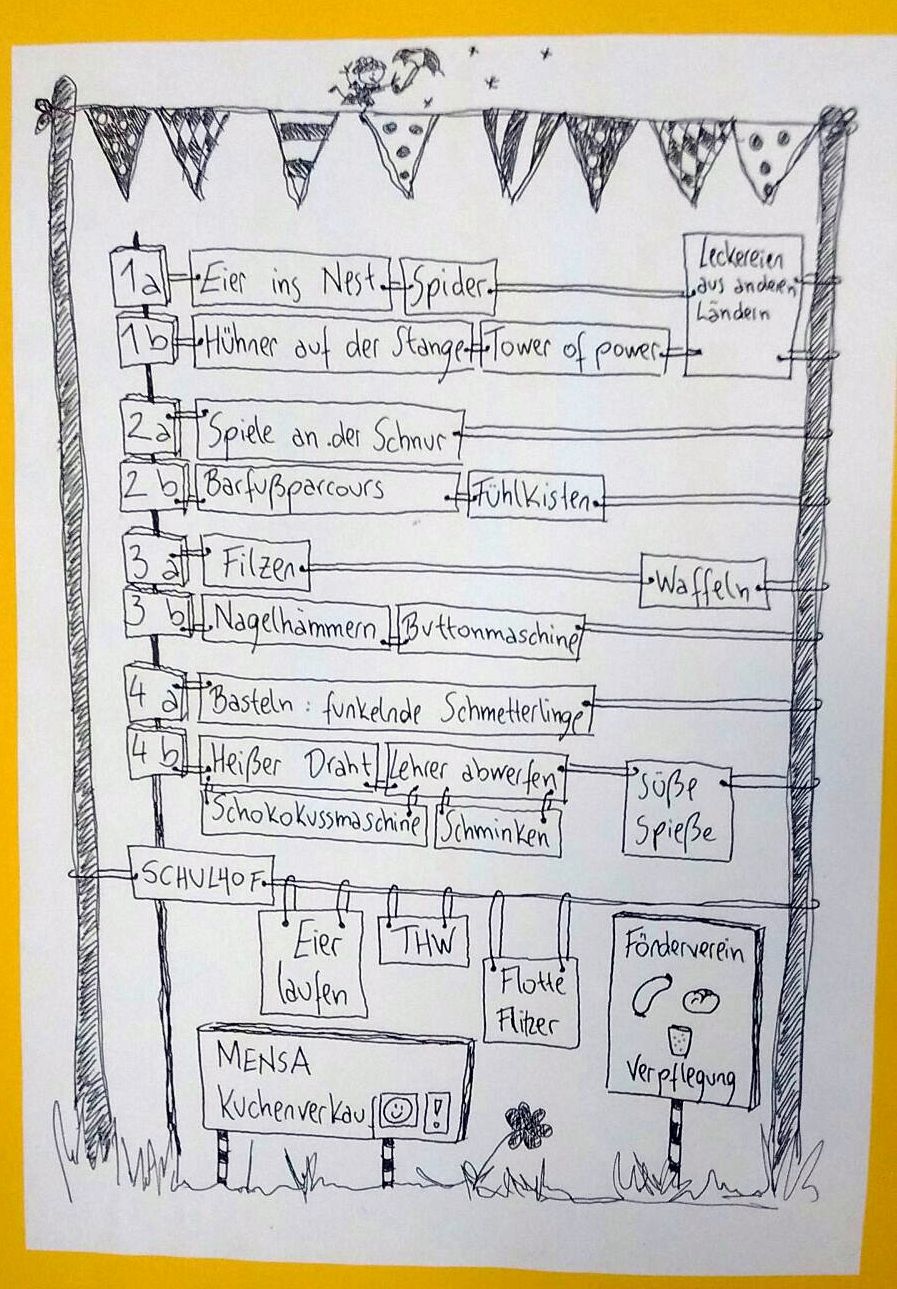 1a Eier ins Nest Spider Leckereien
aus anderen
Ländern
1b Hühner auf der Stange Tower of power
2a Spiele an der Schnur
2b Barfußparcours Fühlkisten
3a Filzen Waffeln
3b Nagelhämmern Buttonmaschine
4a Basteln: funkelnde Schmetterlinge
4b Heißer Draht Lehrer abwerfen süße
Spieße
Schokokussmaschine Schminken
SCHULHOF
Eier
laufen
THW
Flotte
Flitzer
Förderverein
Verpflegung
MENSA
Kuchenverkauf !